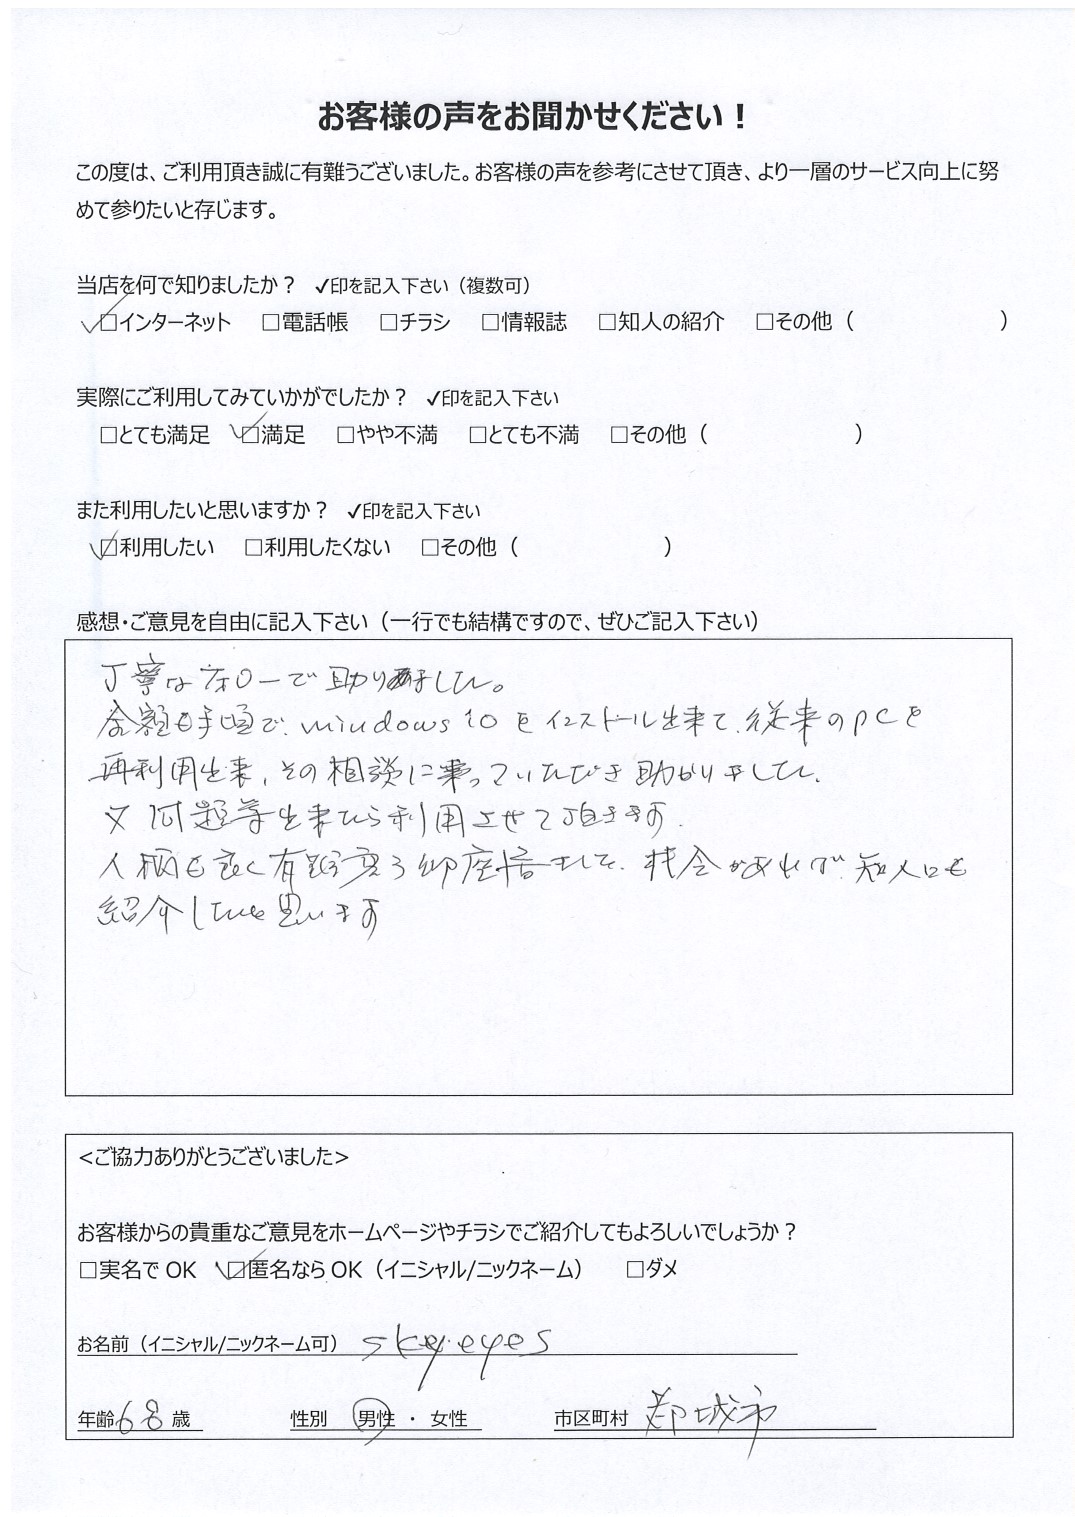 お客様の声をお聞かせください！
この度は、ご利用頂き誠に有難うございました。お客様の声を参考にさせて頂き、より一層のサービス向上に努
めて参りたいと存じます。
当店を何で知りましたか？ ✓印を記入下さい（複数可）
☑インターネット □電話帳 □チラシ □情報誌 □知人の紹介 □その他（ ）
実際にご利用してみていかがでしたか？ ✓印を記入下さい
□とても満足 ☑満足 □やや不満 □とても不満 □その他（ ）
また利用したいと思いますか？ ✓印を記入下さい
☑利用したい □利用したくない □その他（ ）
感想・ご意見を自由に記入下さい（一行でも結構ですので、ぜひご記入下さい）
丁寧なフォローで助かりました。
金額も手頃で、windows10をインストール出来て、従来のPCを
再利用出来、その相談に乗っていただき助かりました。
又、問題等出来たら利用させて頂きます。
人柄も良く有難 機会があれば、知人にも
紹介したいと思います
<ご協力ありがとうございました>
お客様からの貴重なご意見をホームページやチラシでご紹介してもよろしいでしょうか？
□実名でOK ☑匿名ならOK（イニシャル/ニックネーム） □ダメ
お名前（イニシャル/ニックネーム可） skyeyes
年齢 68 歳 性別 男性 ・ 女性 市区町村 都城市